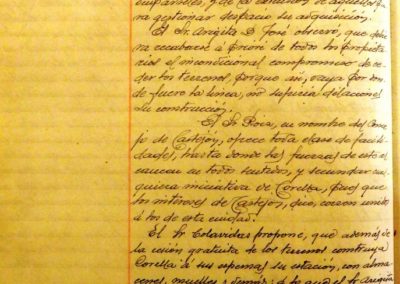 disparables, y de la cesión de aquellos pa-
ra gestionar despacio su adquisición.
El Sr. Arigita D. José observó, que debie-
ra recabarse á priori de todos los propieta-
rios el incondicional compromiso de ce-
der los terrenos, porque así, vaya por don-
de fuere la línea, no sufriría dilaciones
su construcción.
El Sr. Roia, en nombre del Conce-
jo de Castejón, ofrece toda clase de facili-
dades, hasta donde las fuerzas de este al-
cancen en todo sentido, y secundar cual-
quiera iniciativa de Corella, pues que
los intereses de Castejón, dijo, corren unidos
á los de esta ciudad.
El Sr. Salavidas propone, que además de
la cesión gratuita de los terrenos construya
Corella á sus expensas su estación, con alma-
cenes, muelles y demás; á lo que el Sr. Arigita